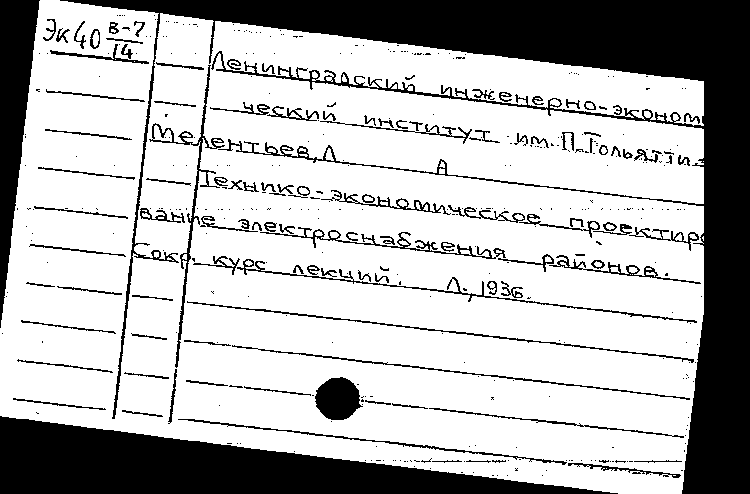 Эк40 В-7/14
Ленинградский инженерно-эконом
ческий институт им. П. Тольятти.
Мелентьев, Л А
Технико-экономическое проектиро
вание электроснабжения районов.
Сокр. курс лекций. Л., 1936.